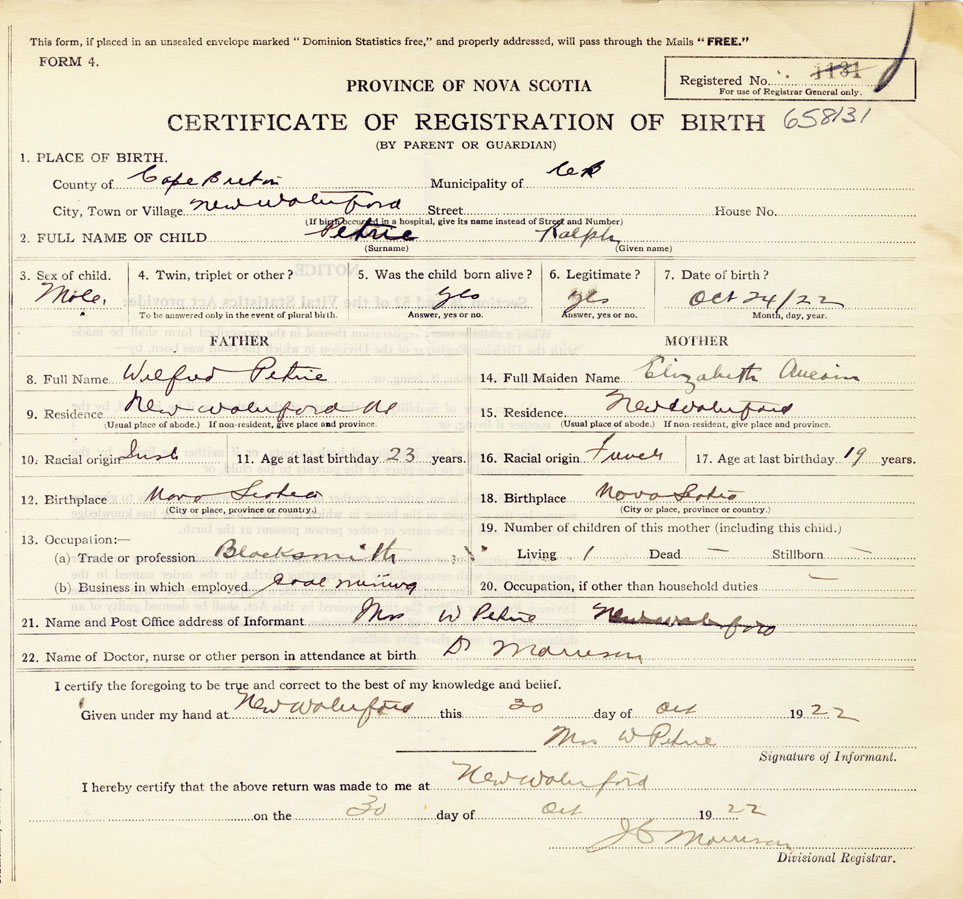 This form, if placed in an unsealed envelope marked "Dominion Statistics free," and properly addressed, will pass through the Mails "FREE."
FORM 4.
Registered No. 1131
For use of Registrar General only.
PROVINCE OF NOVA SCOTIA
CERTIFICATE OF REGISTRATION OF BIRTH 658131
(BY PARENT OR GUARDIAN)
1. PLACE OF BIRTH.
County of Cape Breton Municipality of CB
City, Town or Village New Waterford Street House No.
(If birth occurred in a hospital, give its name instead of Street and Number)
2. FULL NAME OF CHILD Petrie Ralph
(Surname) (Given name)
3. Sex of child. 4. Twin, triplet or other? 5. Was the child born alive? 6. Legitimate? 7. Date of birth?
Male. yes yes Oct 24/22
To be answered only in the event of plural birth. Answer, yes or no. Answer, yes or no. Month, day, year.
FATHER MOTHER
8. Full Name Wilfred Petrie 14. Full Maiden Name Elizabeth Aucoin
9. Residence New Waterford NS 15. Residence. New Waterford
(Usual place of abode.) If non-resident, give place and province. (Usual place of abode.) If non-resident, give place and province.
10. Racial origin Irish 11. Age at last birthday 23 years. 16. Racial origin French 17. Age at last birthday 19 years.
12. Birthplace Nova Scotia 18. Birthplace Nova Scotia
(City or place, province or country.) (City or place, province or country.)
13. Occupation:— 19. Number of children of this mother (including this child.)
(a) Trade or profession Blacksmith Living 1 Dead — Stillborn —
(b) Business in which employed coal mining 20. Occupation, if other than household duties —
21. Name and Post Office address of Informant Mrs W Petrie New Waterford
22. Name of Doctor, nurse or other person in attendance at birth Dr Morrison
I certify the foregoing to be true and correct to the best of my knowledge and belief.
Given under my hand at New Waterford this 30 day of Oct 1922
Mrs W Petrie
Signature of Informant.
I hereby certify that the above return was made to me at New Waterford
on the 30 day of Oct 1922
J C Morrison
Divisional Registrar.